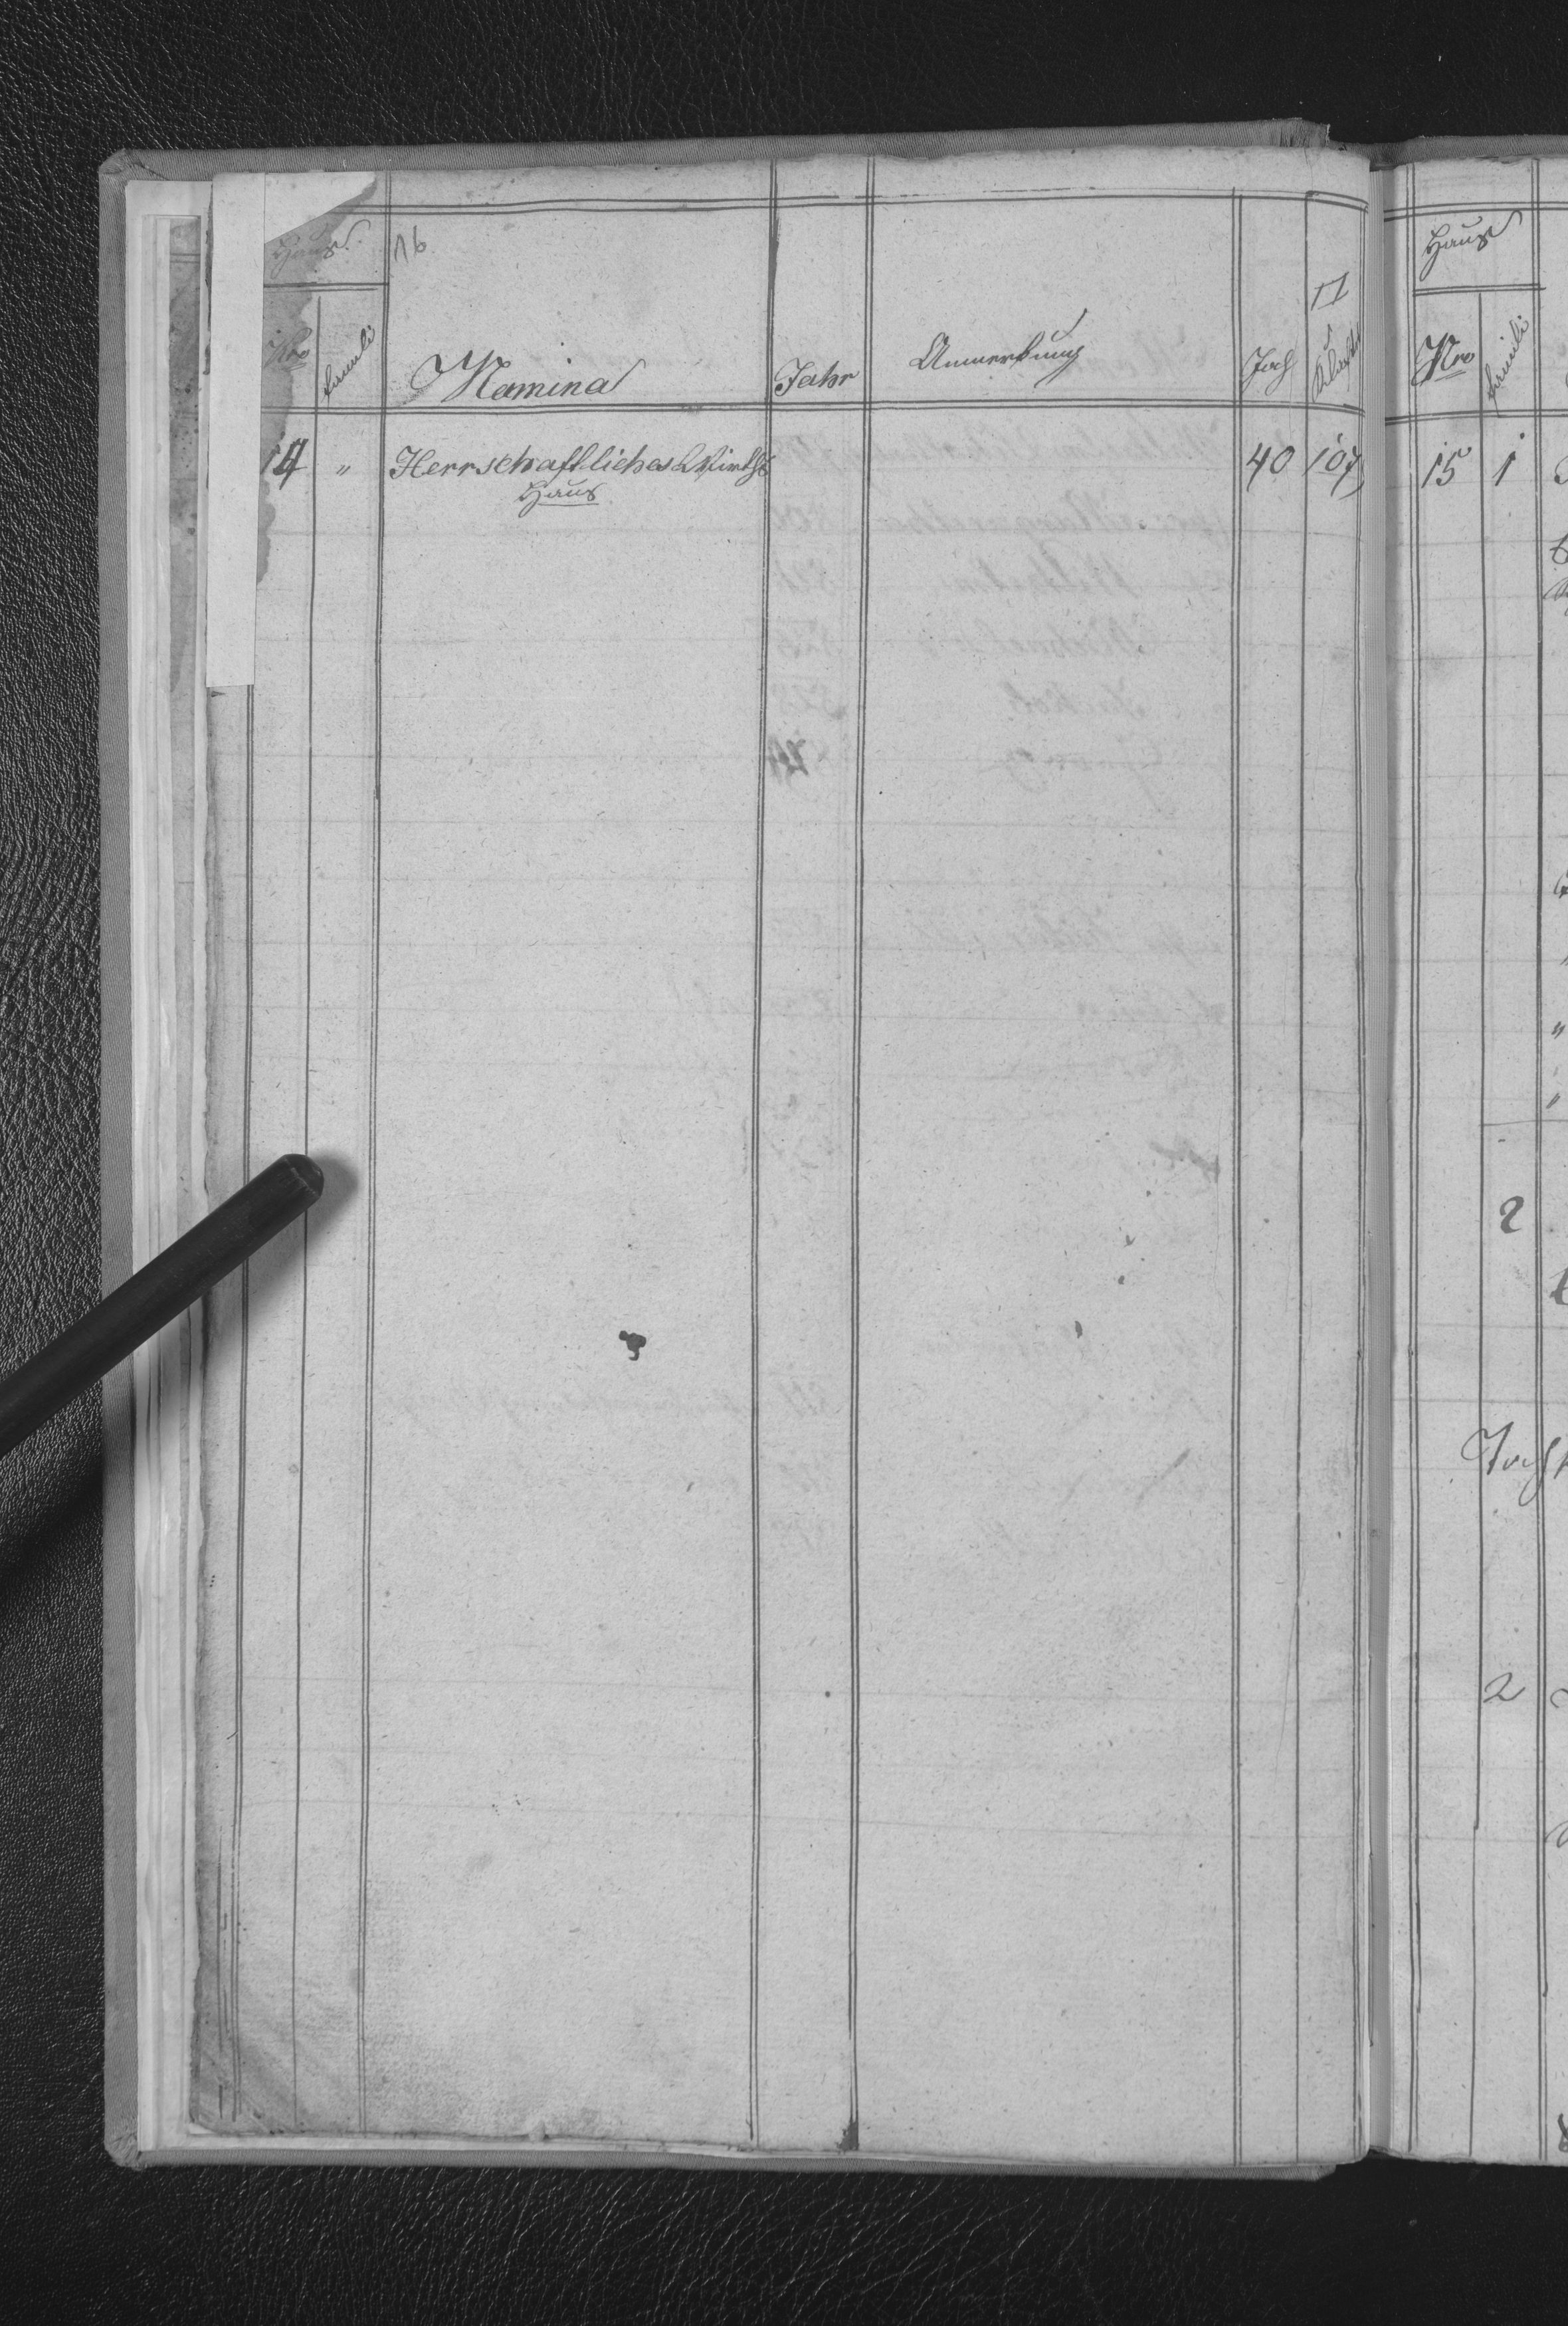 Haus 16
Nro Famili Nomina Jahr Anmerkung Joch □ Klafter
14 " Herrschaftliches Wirths 40 107
Haus
Haus
Nro Famili
15 1
2
2